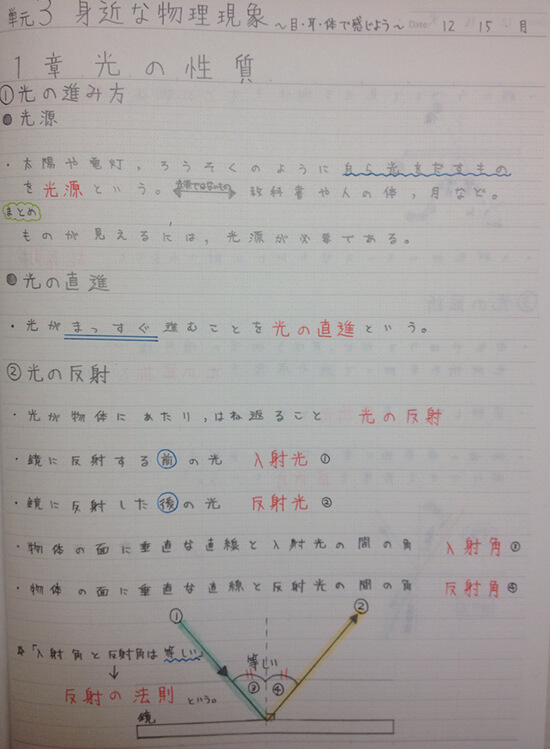 単元3 身近な物理現象 ～目・耳・体で感じよう～ Date 12 15 月
1章 光の性質
①光の進み方
●光源
・太陽や電灯,ろうそくのように自ら光をだすもの
を光源という。 光源ではないもの 教科書や人の体,月など。
まとめ
ものが見えるには,光源が必要である。
●光の直進
・光がまっすぐ進むことを光の直進という。
②光の反射
・光が物体にあたり,はね返ること 光の反射
・鏡に反射する前の光 入射光①
・鏡に反射した後の光 反射光②
・物体の面に垂直な直線と入射光の間の角 入射角③
・物体の面に垂直な直線と反射光の間の角 反射角④
① ②
※「入射角と反射角は等しい」 等しい
③ ④
反射の法則という。
鏡